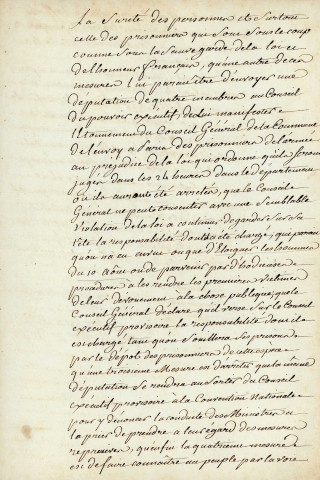 La Sureté des personnes et Surtout
celle des prisonniers que Sont Sous le coup
comme Sous la Sauve garde de la loi et
de l'honneur français, qu'une autre de ces
mesures lui parait être d'envoyer une
députation de quatre membres au Conseil
du pouvoir exécutif, de Lui manifester
l'Etonnement du Conseil Général de la Commune
de l'envoy à Paris des prisonniers de l'armée
au préjudice de la loi qui ordonne qu'ils seront
jugés dans les 24 heures dans le département
où ils auront été arretés, que le Conseil
Général ne peut consentir avec une Semblable
Violation de la loi a continuer de garder Sur Sa
tête la responsabilité dont il a été chargé, que
quon n'a en vue que d'Eloigner les hommes
du 10 Aôut ou de parvenir par d'odieuses
procédures à les rendre les premieres victimes
de leur dévouement à la chose publique, que le
Conseil Général déclare qu'il verse Sur le Conseil
exécutif provisoire la responsabilité dont il a
été chargé tant que Souillera Ses prisons
par le dépôt des prisonniers de cette espece
qu'une troisieme Mesure est d'arreter que la même
députation Se rendra au Sortir du Conseil
exécutif provisoire à la Convention Nationale
pour y dénoncer la conduite des Ministres et
la prier de prendre à leur égard des mesures
repressives, qu'enfin la quatrieme mesure
est de faire connaitre au peuple par la voie